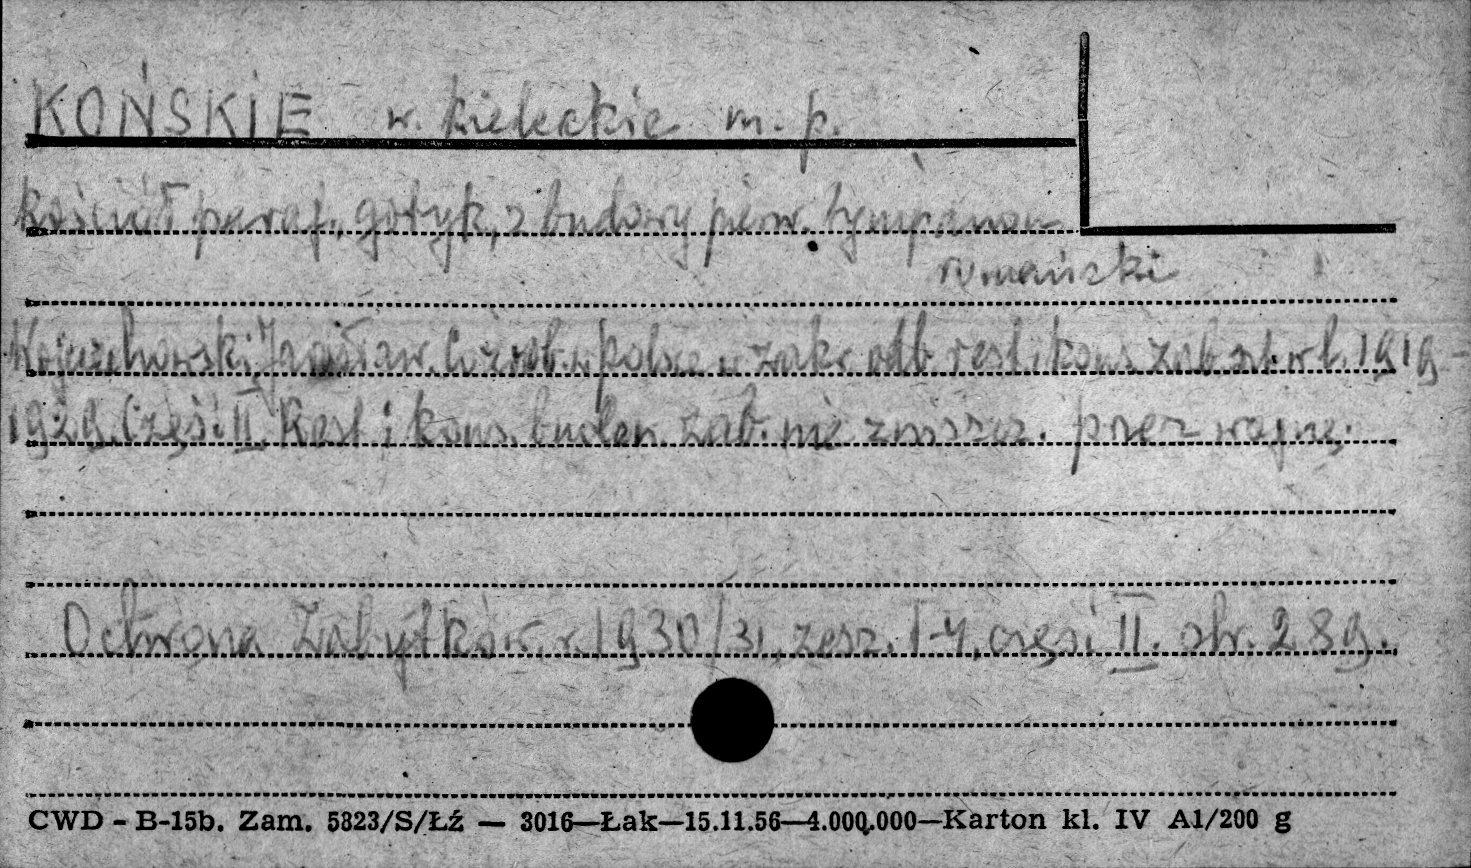 KOŃSKIE w. kieleckie m. p.
kościół paraf., gotyk, z budowy pierw. tympanon
romański
Wojciechowski Jarosław. Co zrob. w Polsce w zakr. odb. rest. i kons. zab. szt. w l. 1919-
1929. Część II. Rest. i kons. budow. zab. nie zniszcz. przez wojnę.
Ochrona Zabytków r. 1930/31, zesz. 1-4, część II. str. 289.
CWD - B-15b. Zam. 5823/S/Łź — 3016—Łak—15.11.56—4.000.000—Karton kl. IV A1/200 g